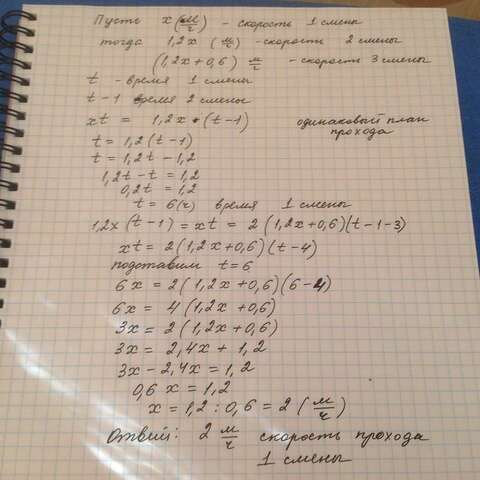 Пусть x (м/ч) - скорость 1 смены
тогда 1,2x (м/ч) - скорость 2 смены
(1,2x+0,6) м/ч - скорость 3 смены
t - время 1 смены
t-1 время 2 смены
xt = 1,2x·(t-1) одинаковый план прохода
t = 1,2(t-1)
t = 1,2t - 1,2
1,2t - t = 1,2
0,2t = 1,2
t = 6(ч) время 1 смены
1,2x(t-1) = xt = 2(1,2x+0,6)(t-1-3)
xt = 2(1,2x+0,6)(t-4)
подставим t=6
6x = 2(1,2x+0,6)(6-4)
6x = 4(1,2x+0,6)
3x = 2(1,2x+0,6)
3x = 2,4x + 1,2
3x - 2,4x = 1,2
0,6x = 1,2
x = 1,2 : 0,6 = 2 (м/ч)
Ответ: 2 м/ч скорость прохода
1 смены